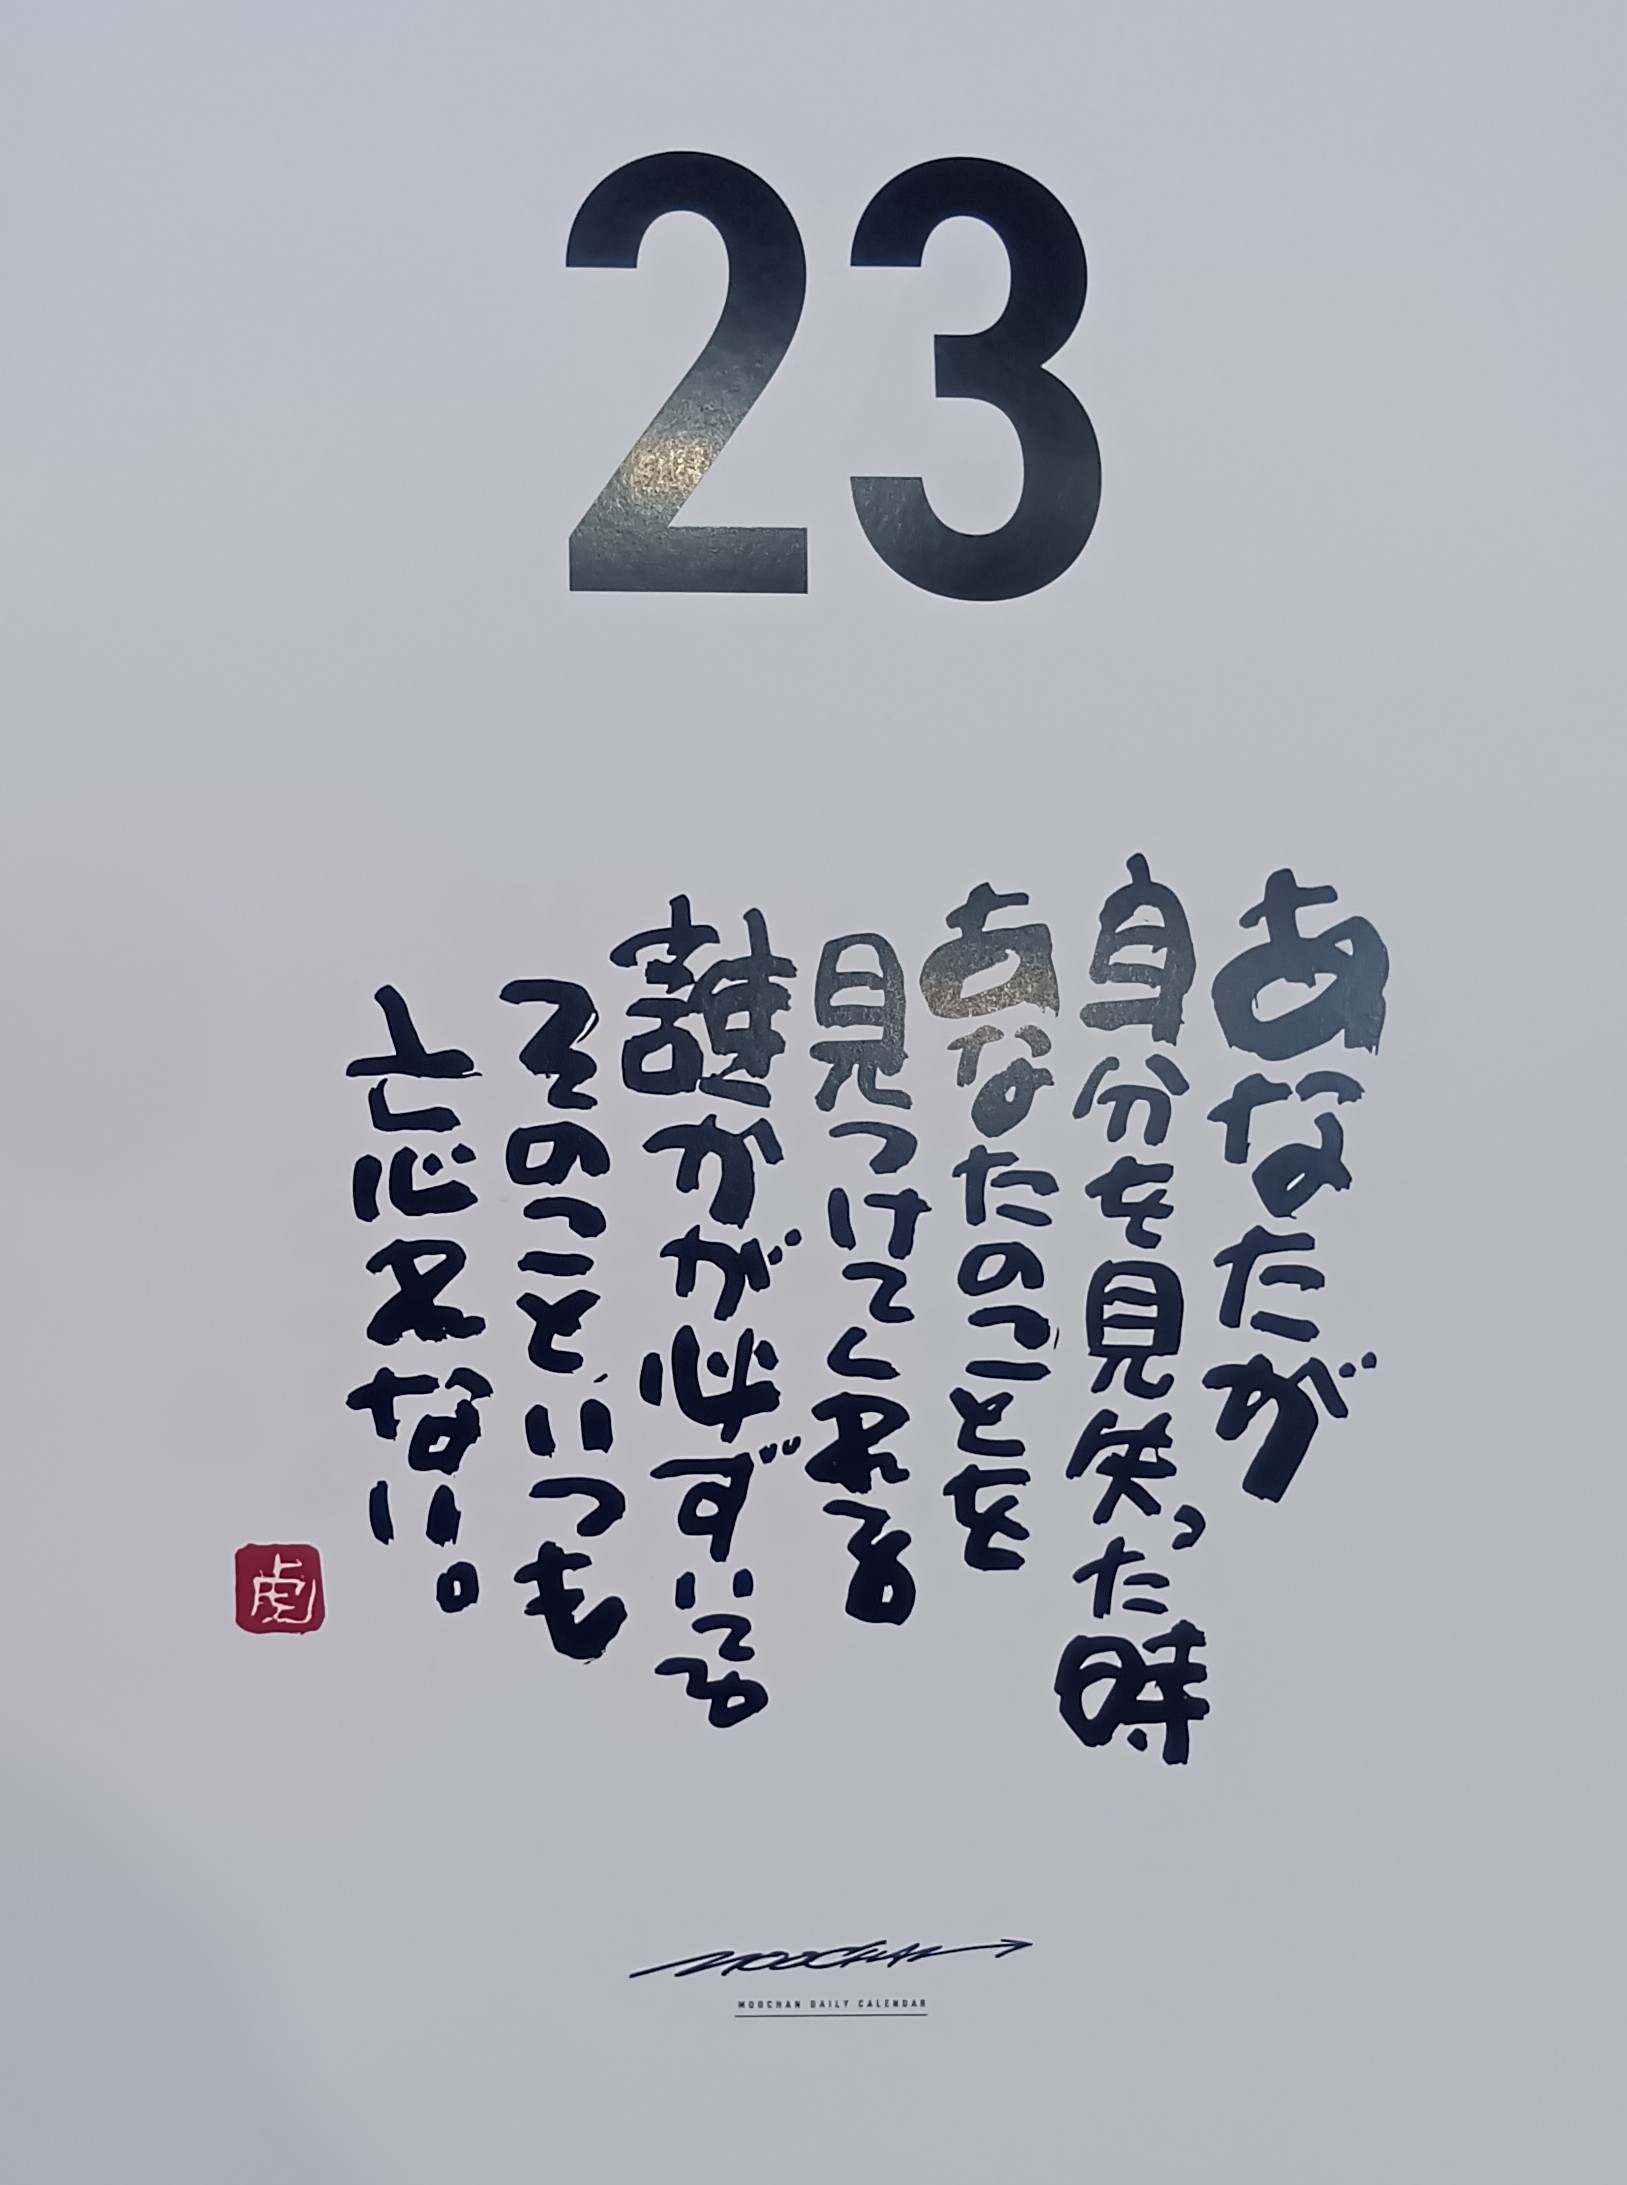 23
あなたが
自分を見失った時
あなたのことを
見つけてくれる
誰かが必ずいてる
そのこと、いつも
忘れない。
虎
MOOCHAN
MOOCHAN DAILY CALENDAR